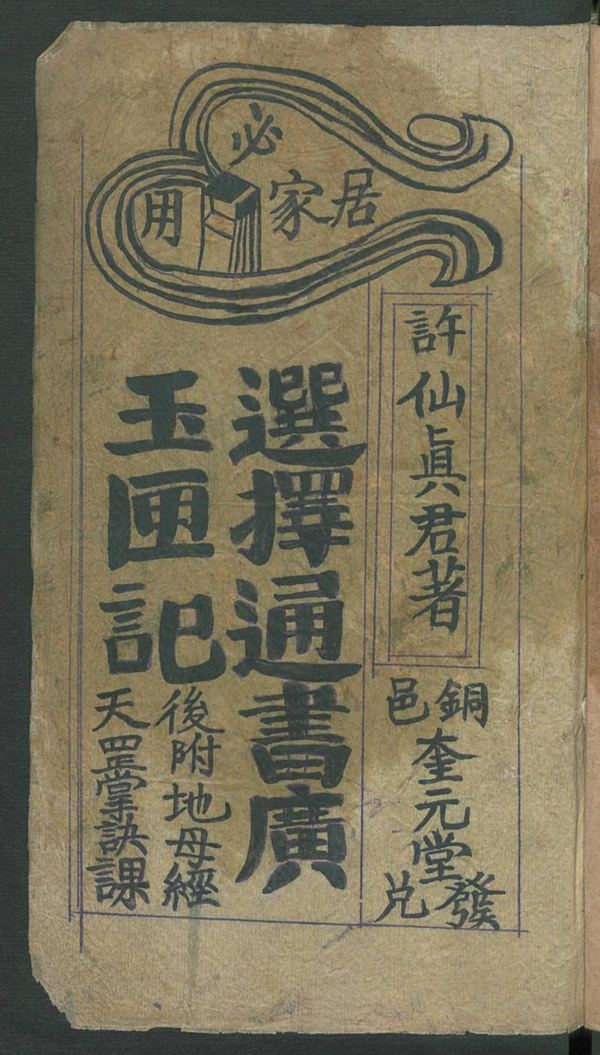 居家必用
許仙真君著
銅邑奎元堂發兌
選擇通書廣
玉匣記
後附地母經
天罡掌訣課